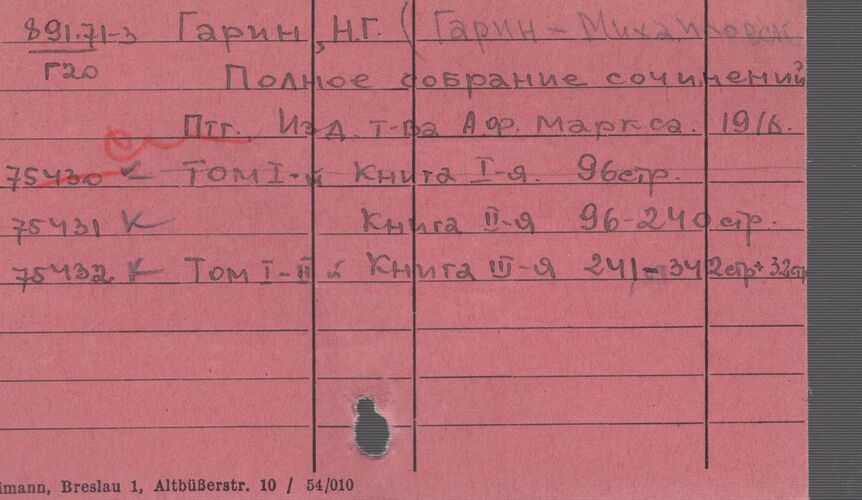 891.71-3 Гарин, Н.Г. (Гарин-Михайловск
Г20 Полное собрание сочинений
Птг. Изд. т-ва А.Ф. Маркса. 1916.
75430 К Том I-й Книга I-я. 96стр.
75431 К Книга II-я 96-240стр.
75432 К Том I-II й Книга III-я 241-342стр+32стр
imann, Breslau 1, Altbüßerstr. 10 / 54/010